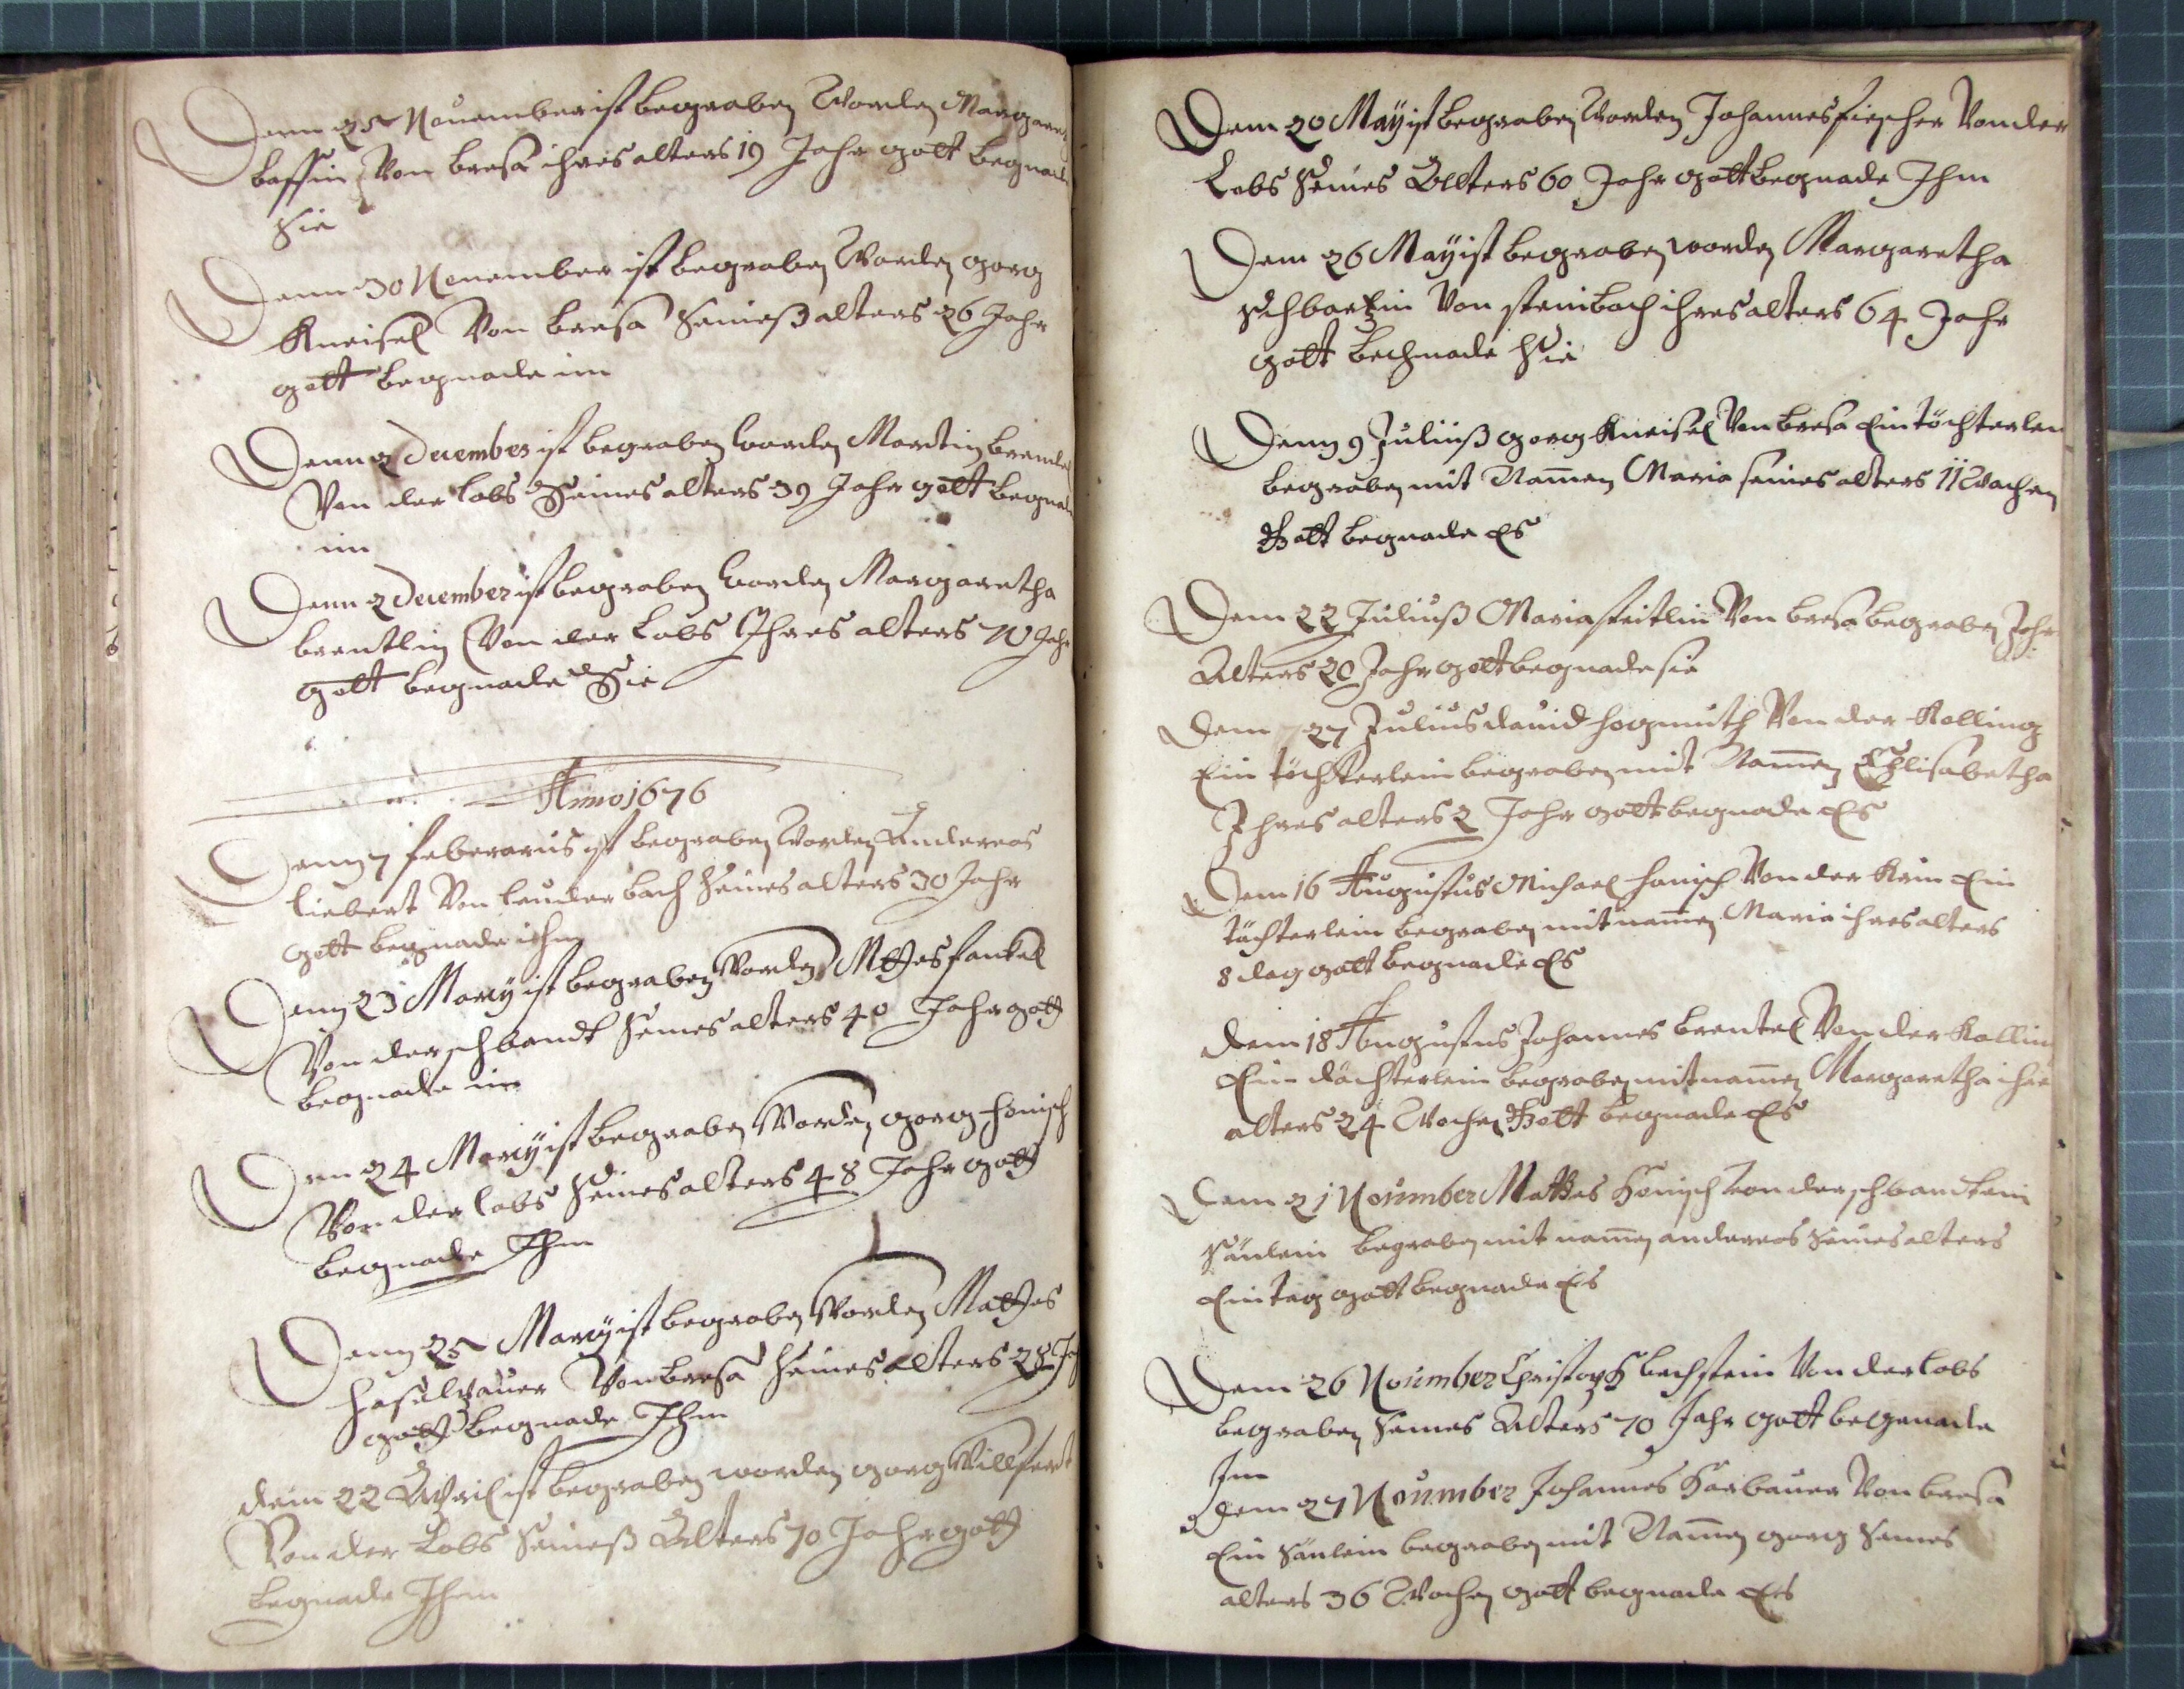 Denn 25 Nouember ist begraben Worden Margare
bessin Von bresa ihres alters 19 Jahr gott begnad
Sie
Denn 30 Nouember ist begraben Worden georg
Kneisel Von bresa Seineß alters 26 Jahr
gott begnade im
Denn 2 December ist begraben worden Martin brentel
Von der Lobs Seines alters 39 Jahr gott begnad
im
Denn 2 December ist begraben worden Margaretha
brentlin Von der Lobs Ihres alters 70 Jahr
gott begnade Sie
Anno 1676
Denn 7 feberarius ist begraben Worden Andereas
liebert Von leuderbach Seines alters 30 Jahr
gott begnade ihm
Denn 23 Marcy ist begraben Worden Mttes fenkel
Von der schbandt Seines alters 40 Jahr gott
begnade im
Den 24 Marcy ist begraben Worden georg honisch
Von der lobs Seines alters 48 Jahr gott
begnade Ihm
Denn 25 Marcy ist begraben Worden Mattes
haselbauer Von bresa Seines alters 28 Ja
gott begnade Ihm
dem 22 Abril ist begraben worden georg Willfert
Von der Lobs Seineß Alters 70 Jahr gott
begnade Ihm
Dem 20 May ist begraben Worden Johannes fischer Von der
Lobs Seines Allters 60 Jahr gott begnade Ihm
Dem 26 May ist begraben worden Margaretha
schbartzin Von steinbach ihres alters 64 Jahr
gott bechnade Sie
Denn 9 Juliuß georg Kneisel Von bresa Ein töchterlen
begraben mit Namen Maria seines alters 11 Wachen
Gott begnade Es
Dem 22 Juliuß Maria feitlin Von bresa begraben Ihr
Alters 20 Jahr gott begnade sie
Dem 27 Julius dauid hogmuth Von der Kolling
Ein töchterlein begraben mit Namen Elisabetha
Ihres alters 2 Jahr gott begnade Es
Dem 16 Augustus Michael hanisch Von der Krin Ein
töchterlein begraben mit namen Maria ihres alters
8 dag gott begnade Es
dem 18 Augustus Johannes brentel Von der Kollin
Ein döchterlein begraben mit namen Margaretha ihre
alters 24 Wochen Gott begnade Es
Dem 21 Nouember Mattes Honisch Von der schbandt ein
Sönlein begraben mit namen andereas Seines alters
Ein tag gott begnade Es
Dem 26 Nouember Christoph bachstein Von der Lobs
begraben Seines Alters 70 Jahr gott begenade
Im
dem 27 Nouember Johannes Harbauer Von bresa
Ein Sönlein begraben mit Namen georg Seines
alters 36 Wochen gott begnade Es